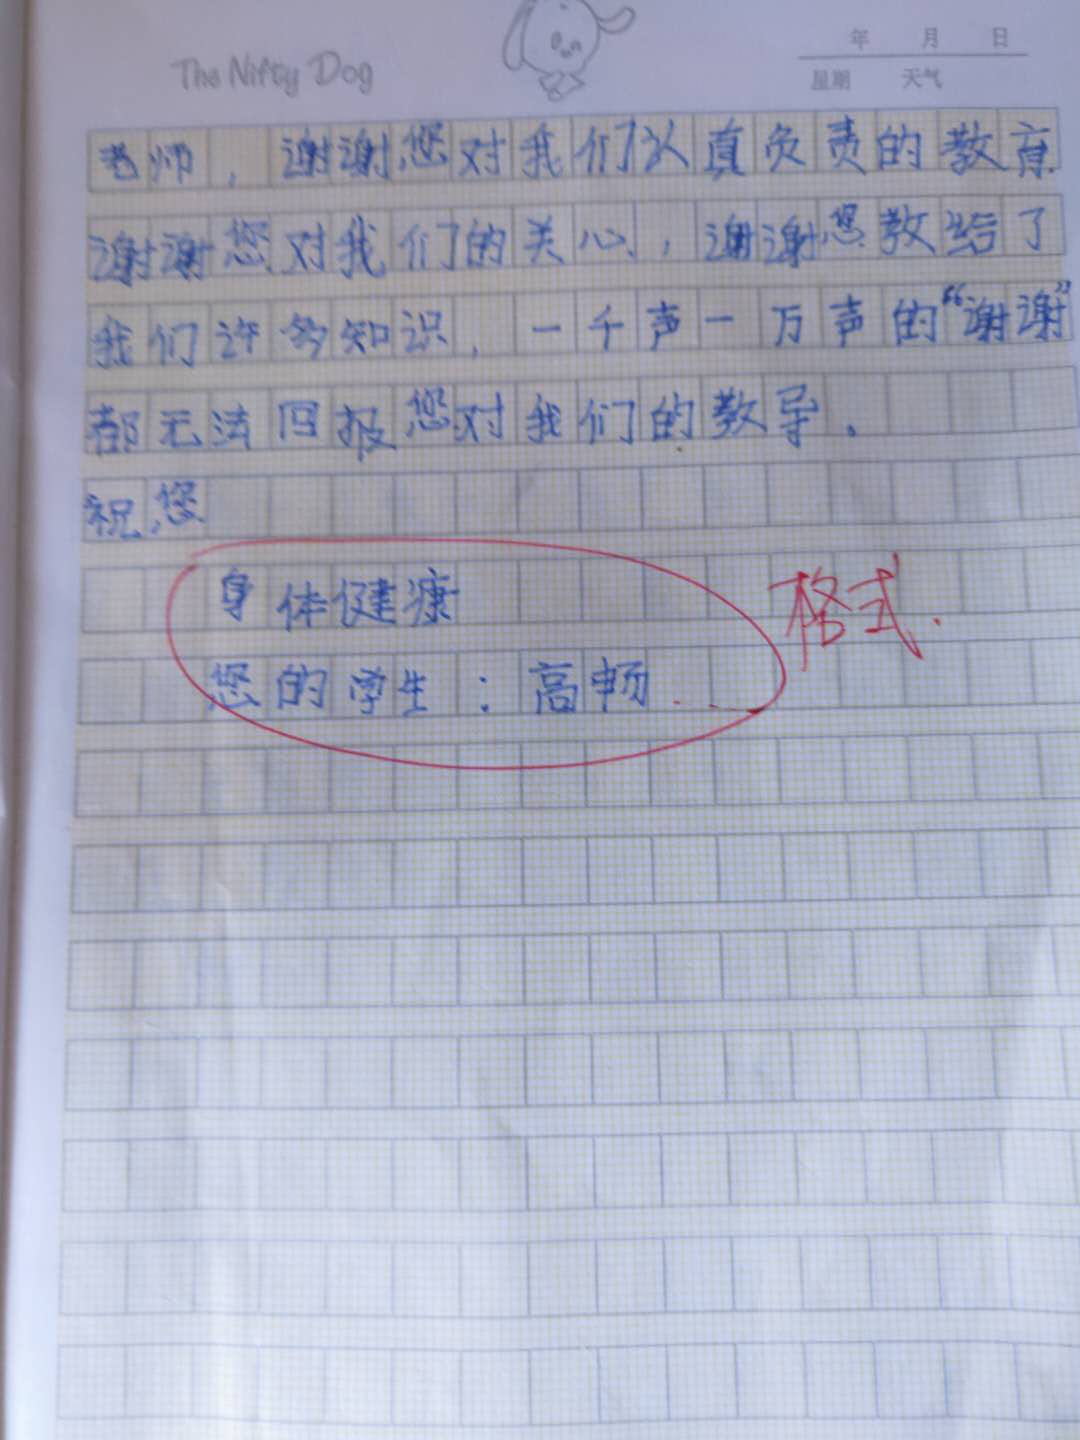 The Nifty Dog
年 月 日
星期 天气
老师，谢谢您对我们认真负责的教育
谢谢您对我们的关心，谢谢您教给了
我们许多知识，一千声一万声的“谢谢”
都无法回报您对我们的教导。
祝您
身体健康
格式.
您的学生：高畅